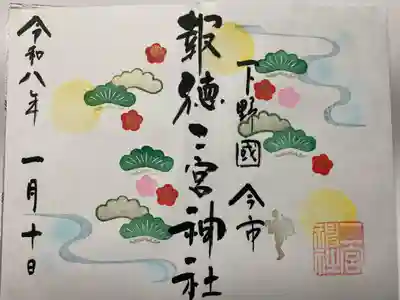 下野國 今市
報徳二宮神社
令和八年 一月十日
二宮神社